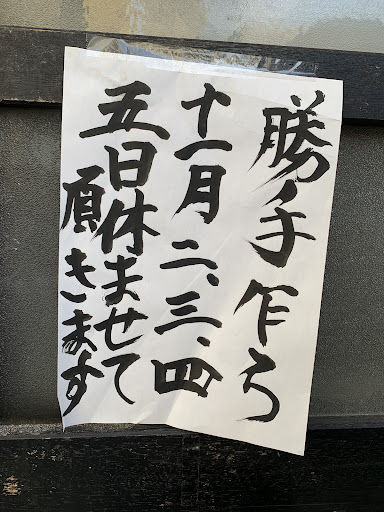 勝手乍ら
十一月二、三、四
五日休ませて
頂きます